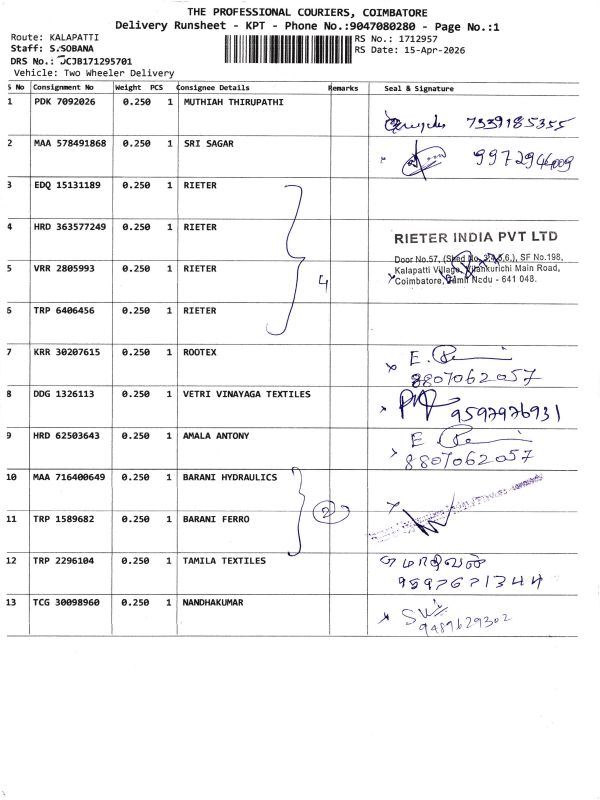 THE PROFESSIONAL COURIERS, COIMBATORE
Delivery Runsheet - KPT - Phone No.:9047080280 - Page No.:1
Route: KALAPATTI
RS No.: 1712957
Staff: S.SOBANA
RS Date: 15-Apr-2026
DRS No.: JCJB171295701
Vehicle: Two Wheeler Delivery
S No Consignment No Weight PCS Consignee Details Remarks Seal & Signature
1 PDK 7092026 0.250 1 MUTHIAH THIRUPATHI
7339185355
2 MAA 578491868 0.250 1 SRI SAGAR
9972944009
3 EDQ 15131189 0.250 1 RIETER
4 HRD 363577249 0.250 1 RIETER
RIETER INDIA PVT LTD
Door No.57, (Shed No. 3,4,5,6.), SF No.198,
5 VRR 2805993 0.250 1 RIETER
Kalapatti Village, Vilankurichi Main Road,
4
Coimbatore, Tamil Nadu - 641 048.
6 TRP 6406456 0.250 1 RIETER
7 KRR 30207615 0.250 1 ROOTEX
E.
8807062057
8 DDG 1326113 0.250 1 VETRI VINAYAGA TEXTILES
9597976931
9 HRD 62503643 0.250 1 AMALA ANTONY
E
8807062057
10 MAA 716400649 0.250 1 BARANI HYDRAULICS
2
11 TRP 1589682 0.250 1 BARANI FERRO
12 TRP 2296104 0.250 1 TAMILA TEXTILES
9597671344
13 TCG 30098960 0.250 1 NANDHAKUMAR
9489629302